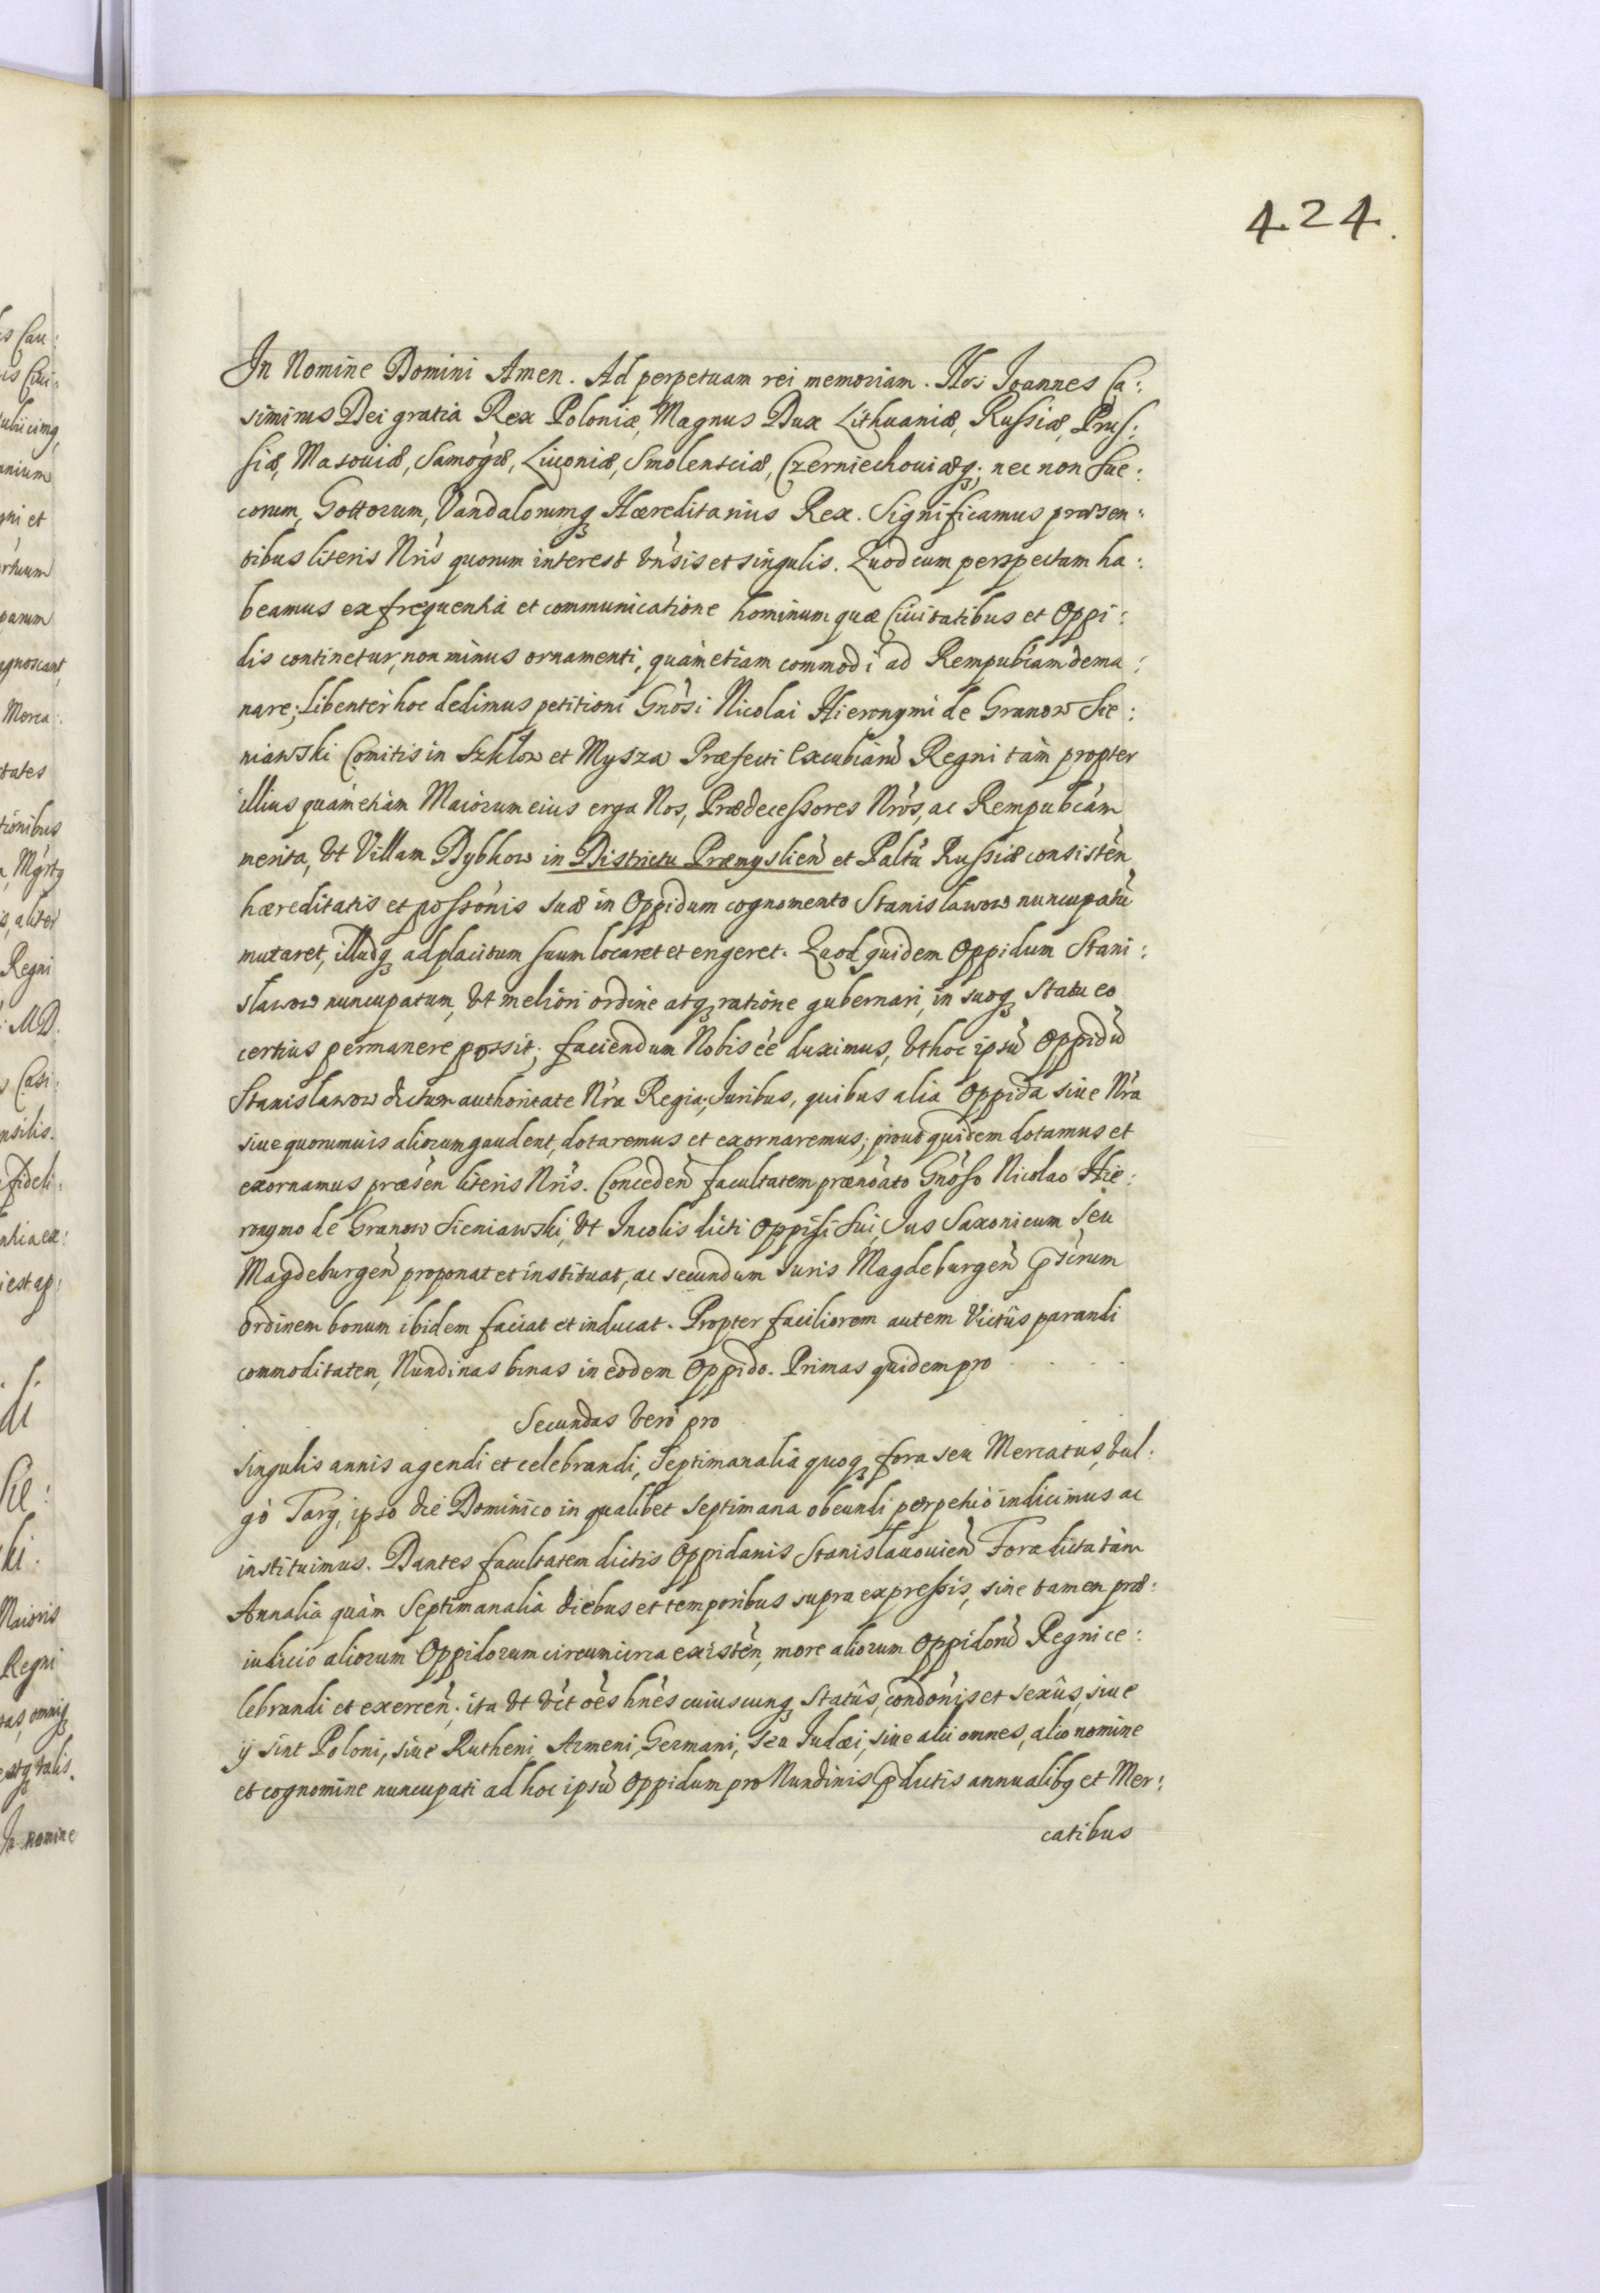 424.
In Nomine Domini Amen. Ad perpetuam rei memoriam. Nos Ioannes Ca:
simirus Dei gratia Rex Poloniæ, Magnus Dux Lithuaniæ, Russiæ, Prus:
siæ, Masouiæ, Samog̃æ, Liuoniæ, Smolensciæ, Czerniechouiæq;, nec non Sue:
corum, Gottorum, Vandalorumq; Hæreditarius Rex. Significamus præsen:
tibus literis Nr̃is quorum interest vn̄sis et singulis. Quod cum perspectum ha:
beamus ex frequentia et communicatione hominum quæ Ciuitatibus et Oppi:
dis continetur, non minus ornamenti, quàm etiam commodi ad Rempubĩcam dema:
nare; libenter hoc dedimus petitioni Gnõsi Nicolai Hieronymi de Granow Sie:
niawski Comitis in Szklow et Mysza Præfecti Excubiarũ Regni tàm propter
illius quàm etiàm Maiorum eius erga Nos, Prædecessores Nrõs, ac Rempubcãm
merita, vt Villam Dybkow in Districtu Præmyslieñ et Paltũ Russiæ consisteñ
hæreditatis et possõnis suæ in Oppidum cognomento Stanislawow nuncupatũ
mutaret, illudq; ad placitum suum locaret et erigeret. Quod quidem Oppidum Stani:
slawow nuncupatum, vt meliori ordine atq; ratione gubernari, in suoq; statu eo
certius permanere possit; faciendum Nobis eẽ duximus, vt hoc ipsũ Oppidũ
Stanislawow dictum authoritate Nr̃a Regia, Iuribus, quibus alia Oppida siue Nr̃a
siue quorumuis aliorum gaudent, dotaremus et exornaremus; prout quidem dotamus et
exornamus præseñ literis Nr̃is. Concedeñ facultatem prænoãto Gnõso Nicolao Hie:
ronymo de Granow Sieniawski, vt Incolis dicti Oppidi sui, Ius Saxonicum seu
Magdeburgeñ proponat et instituat, ac secundum Iuris Magdeburgeñ p̃scr̃um
ordinem bonum ibidem faciat et inducat. Propter faciliorem autem Victûs parandi
commoditatem, Nundinas binas in eodem Oppido. Primas quidem pro . . . .
Secundas verò pro
singulis annis agendi et celebrandi, Septimanalia quoq; fora seu Mercatus, vul:
gò Targ, ipso die Dominico in qualibet septimana obeundi perpetuò indicimus ac
instituimus. Dantes facultatem dictis Oppidanis Stanislauouieñ Fora dicta tàm
Annalia quàm Septimanalia diebus et temporibus supra expressis, sine tamen præ:
iudicio aliorum Oppidorum circumcirca existeñ, more aliorum Oppidorũ Regni ce:
lebrandi et exerceñ. ita vt vt̃ oẽs hnẽs cuiuscunq; statûs, condõnis et sexûs, siue
ij sint Poloni, siue Rutheni, Armeni, Germani, seu Iudæi, siue alii omnes, alio nomine
et cognomine nuncupati ad hoc ipsũ Oppidum pro Nundinis p̃dictis annualibq; et Mer:
catibus